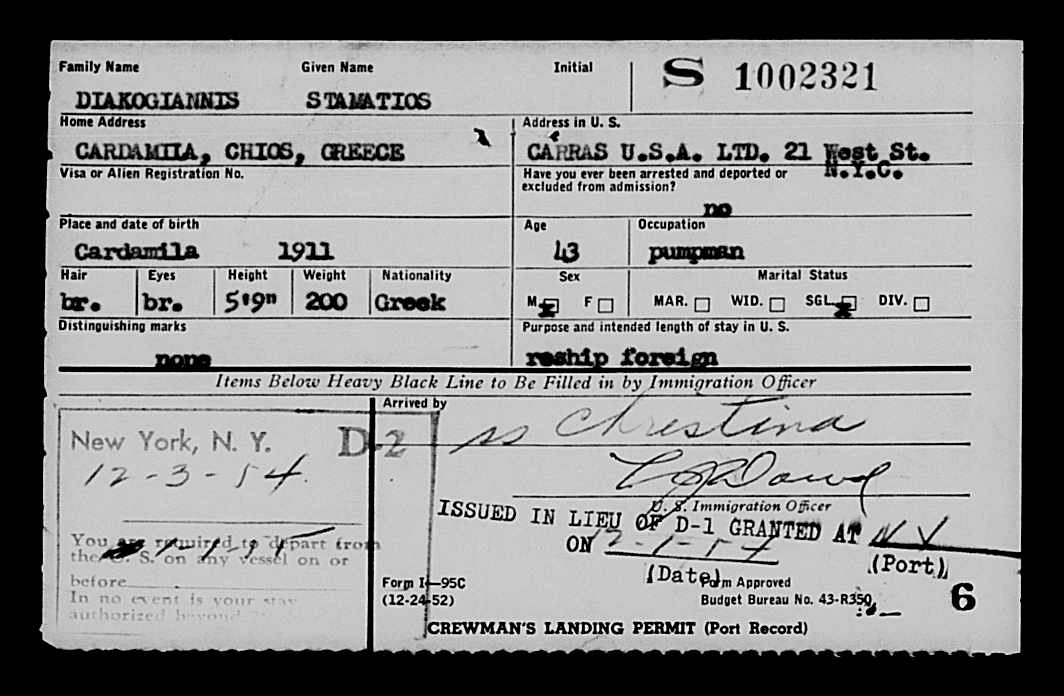 Family Name Given Name Initial S 1002321
DIAKOGIANNIS STAMATIOS
Home Address Address in U. S.
CARDAMILA, CHIOS, GREECE CARRAS U.S.A. LTD. 21 West St.
N.Y.C.
Visa or Alien Registration No. Have you ever been arrested and deported or
excluded from admission?
no
Place and date of birth Age Occupation
Cardamila 1911 43 pumpman
Hair Eyes Height Weight Nationality Sex Marital Status
br. br. 5'9" 200 Greek M x F MAR. WID. SGL. x DIV.
Distinguishing marks Purpose and intended length of stay in U. S.
none reship foreign
Items Below Heavy Black Line to Be Filled in by Immigration Officer
Arrived by
New York, N. Y. D-2 ss Christina
12-3-54
U. S. Immigration Officer
ISSUED IN LIEU OF D-1 GRANTED AT N Y
ON 12-1-54 (Port)
(Date)
You are required to depart from
the U. S. on any vessel on or
before
In no event is your stay
authorized beyond
Form I-95C Form Approved
(12-24-52) Budget Bureau No. 43-R350
6
CREWMAN'S LANDING PERMIT (Port Record)